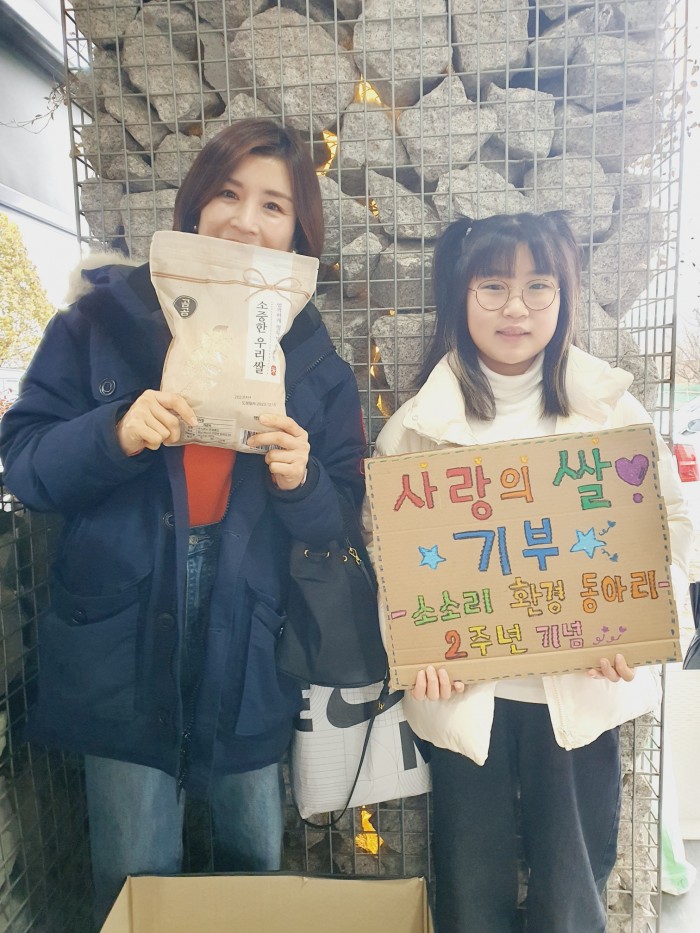 곰곰
소중한 우리쌀
사랑의 쌀
기부
-소소리 환경 동아리-
2주년 기념